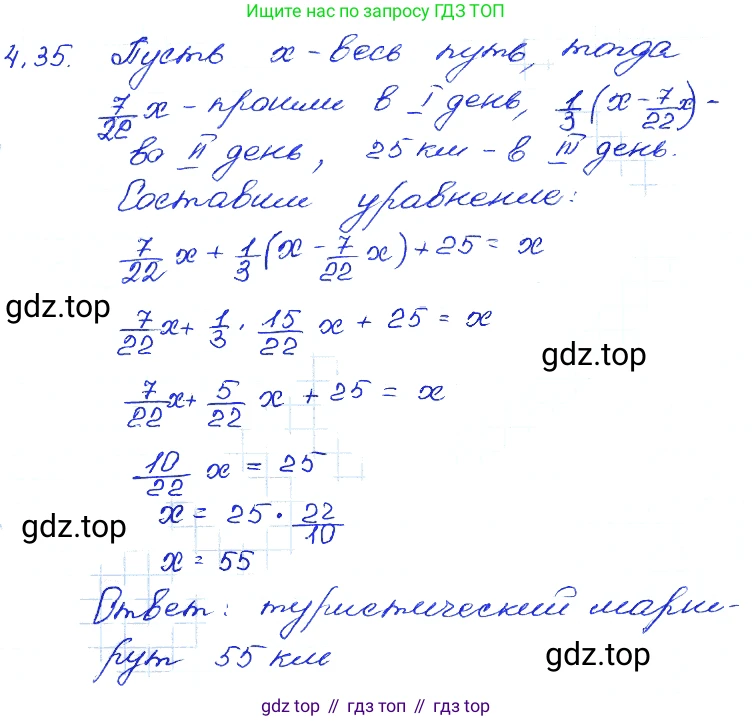 Ищите нас по запросу ГДЗ ТОП
4.35. Пусть x - весь путь, тогда
7/22 x - прошли в I день, 1/3 (x - 7/22 x) -
во II день, 25 км - в III день.
Составим уравнение:
7/22 x + 1/3 (x - 7/22 x) + 25 = x
gdz.top
7/22 x + 1/3 · 15/22 x + 25 = x
gdz.top
7/22 x + 5/22 x + 25 = x
10/22 x = 25
x = 25 · 22/10
gdz.top
x = 55
Ответ: туристический марш-
рут 55 км
gdz.top
gdz.top // гдз топ // gdz.top // гдз топ